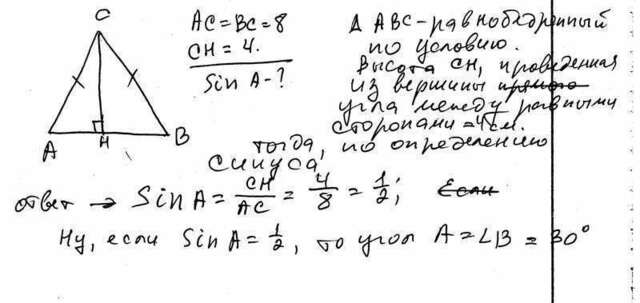 C
A
H
B
AC=BC=8
CH=4.
Sin A-?
Δ ABC-равнобедренный
по условию.
Высота CH, проведенная
из вершины
угла между равными
сторонами =4см.
тогда, по определению
синуса
ответ → Sin A = CH/AC = 4/8 = 1/2; Если
Ну, если Sin A = 1/2, то угол A = ∠B = 30°